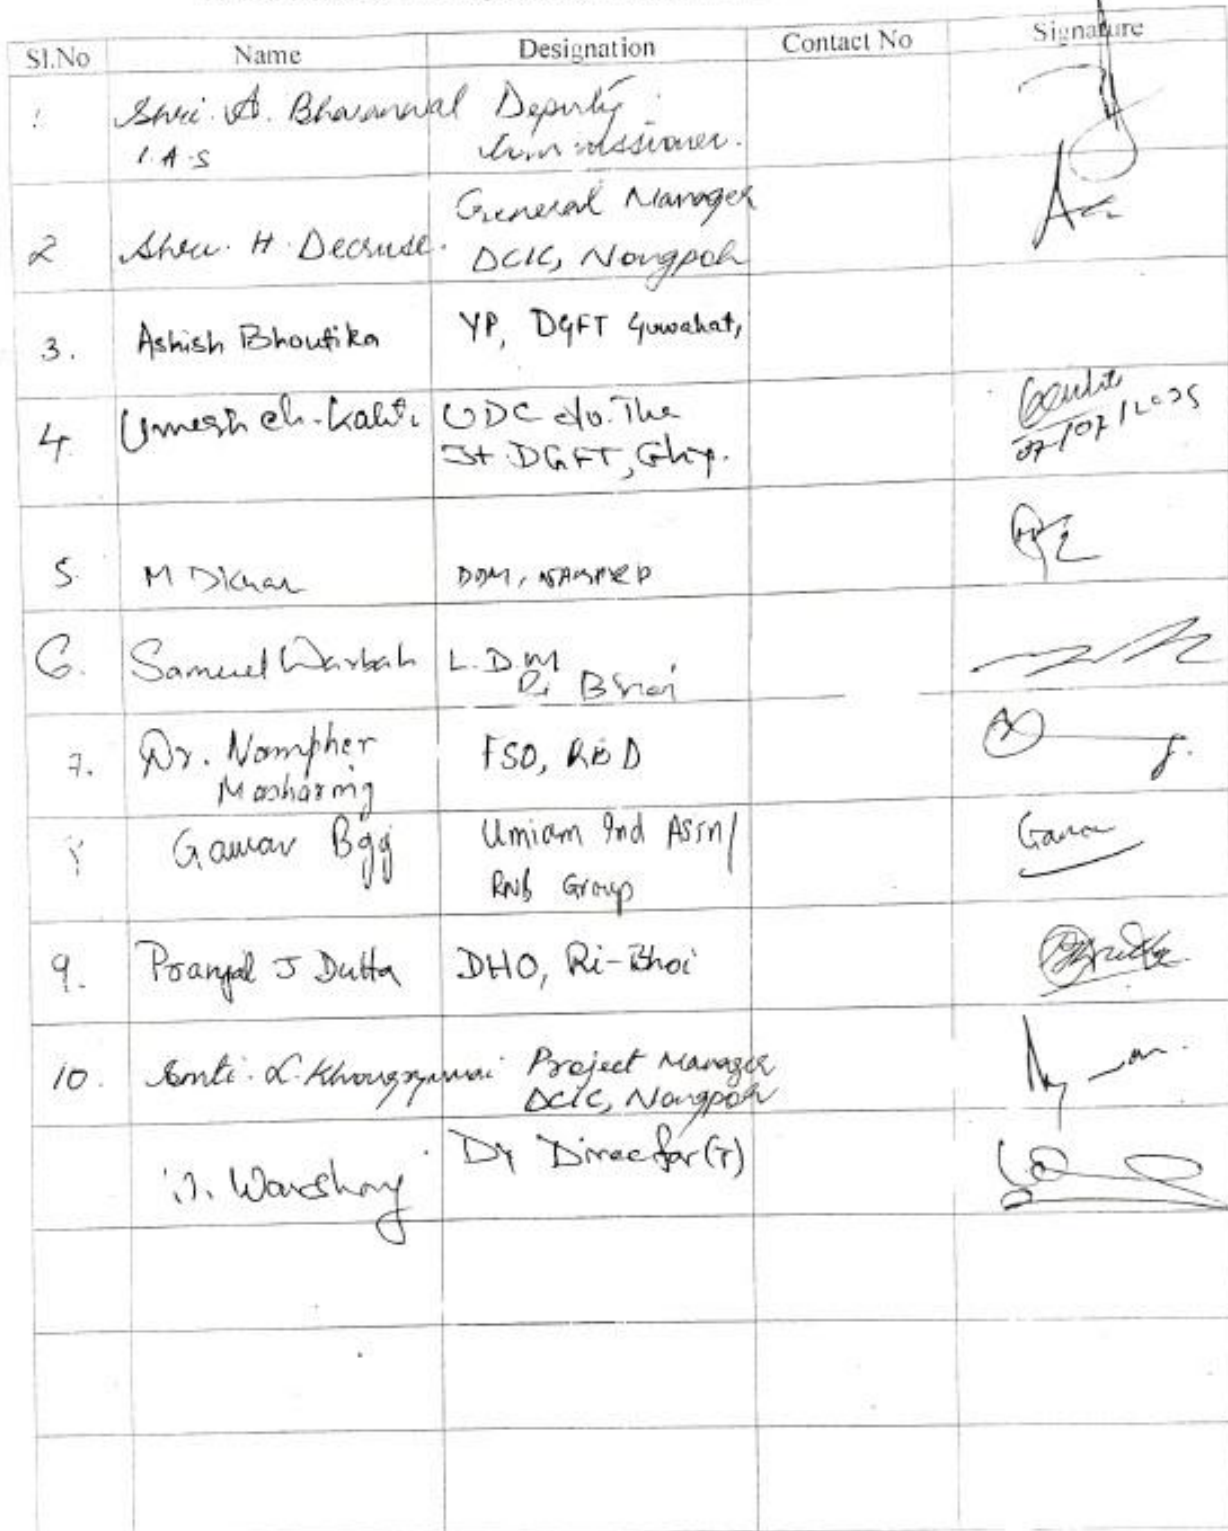 Sl.No Name Designation Contact No Signature
1 Shri. A. Bhasanwal Deputy
I.A.S Commissioner.
General Manager
2 Shri. H. Decruse. DCIC, Nongpoh
3. Ashish Bhoutika YP, DGFT Guwahati
4. Umesh ch. Kalita UDC o/o. The
Jt. DGFT, Ghy.
07/07/2025
5. M Dkhar DDM, NABARD
6. Samuel Warbah L.D.M
Ri Bhoi
7. Dr. Nampher FSO, RBD
Masharing
8 Gaurav Bajaj Umiam Ind Assn/
RNB Group
Gaurav
9. Pranjal J Dutta DHO, Ri-Bhoi
10. Smti. L. Project Manager
DCIC, Nongpoh
Warshong Dy Director (T)